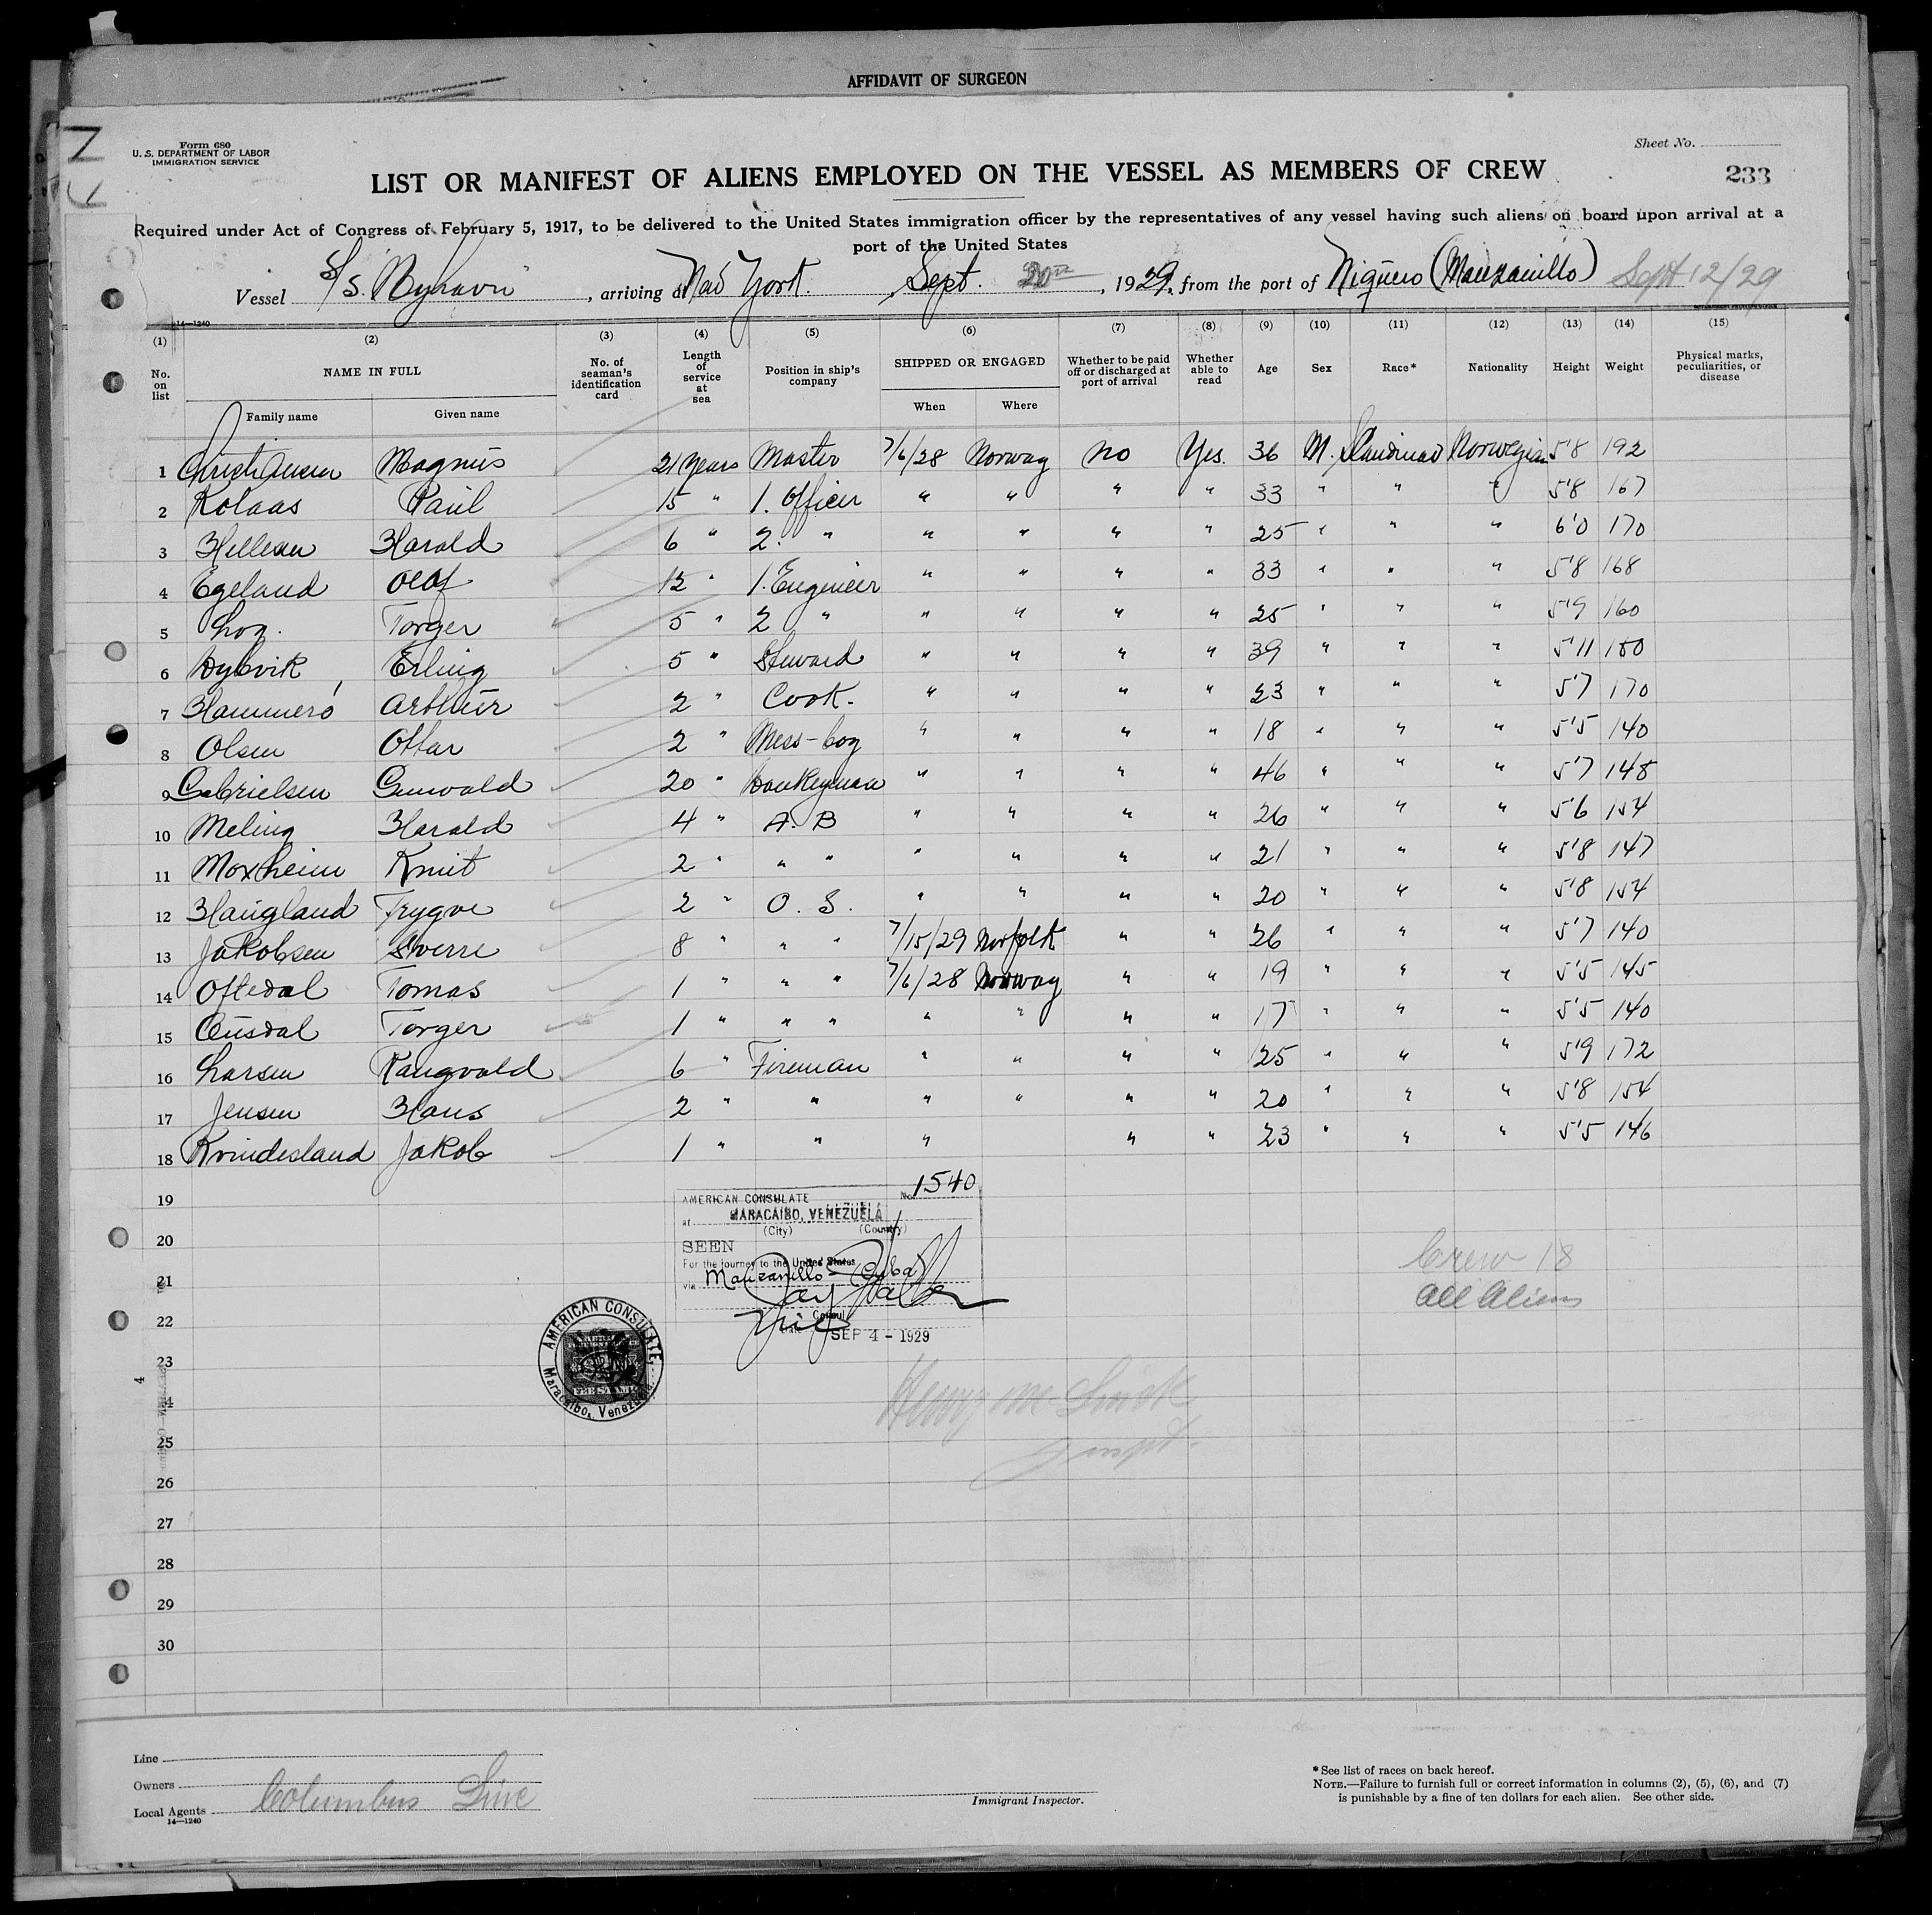 AFFIDAVIT OF SURGEON
Form 680
U. S. DEPARTMENT OF LABOR
IMMIGRATION SERVICE
Sheet No.
233
LIST OR MANIFEST OF ALIENS EMPLOYED ON THE VESSEL AS MEMBERS OF CREW
Required under Act of Congress of February 5, 1917, to be delivered to the United States immigration officer by the representatives of any vessel having such aliens on board upon arrival at a
port of the United States
Vessel S/S. , arriving at New York. , Sept. 20th , 1929, from the port of Niquero (Manzanillo) Sept 12/29
14—1240
(1) (2) (3) (4) (5) (6) (7) (8) (9) (10) (11) (12) (13) (14) (15)
No. on list NAME IN FULL No. of seaman's identification card Length of service at sea Position in ship's company SHIPPED OR ENGAGED Whether to be paid off or discharged at port of arrival Whether able to read Age Sex Race* Nationality Height Weight Physical marks, peculiarities, or disease
Family name Given name When Where
1 Christensen Magnus 21 Years Master 7/6/28 Norway No Yes. 36 M. Scandinav Norwegian 5'8 192
2 Kolaas Paul 15 " 1. Officer " " " " 33 " " " 5'8 167
3 Helleren Harald 6 " 2. " " " " " 25 " " " 6'0 170
4 Egeland Olaf 12 " 1. Engineer " " " " 33 " " " 5'8 168
5 Torger 5 " 2 " " " " " 25 " " " 5'9 160
6 Dybvik Erling 5 " Steward " " " " 39 " " " 5'11 180
7 Hammerö Arthur 2 " Cook. " " " " 23 " " " 5'7 170
8 Olsen Ottar 2 " Mess-boy " " " " 18 " " " 5'5 140
9 Gabrielsen Gunvald 20 " Donkeyman " " " " 46 " " " 5'7 148
10 Meling Harald 4 " A. B " " " " 26 " " " 5'6 154
11 Moxheim Knut 2 " " " " " " " 21 " " " 5'8 147
12 Haugland Trygve 2 " O. S. " " " " 20 " " " 5'8 154
13 Jakobsen Sverre 8 " " " 7/15/29 Norfolk " " 26 " " " 5'7 140
14 Oftedal Tomas 1 " " " 7/6/28 Norway " " 19 " " " 5'5 145
15 Torger 1 " " " " " " " 17 " " " 5'5 140
16 Larsen Rangvald 6 " Fireman " " " " 25 " " " 5'9 172
17 Jensen Hans 2 " " " " " " 20 " " " 5'8 154
18 Kvindesland Jakob 1 " " " " " 23 " " " 5'5 146
19
20
21
22
23
24
25
26
27
28
29
30
AMERICAN CONSULATE No. 1540
at MARACAIBO, VENEZUELA
(City) (Country)
SEEN
For the journey to the United States
via Manzanillo - Cuba
Vice Consul
Date SEP 4 - 1929
AMERICAN CONSULATE
FEE STAMP
Maracaibo, Venezuela
Crew 18
All Aliens
Henry
Inspt.
4
Line
Owners
Local Agents Columbus Line
14—1240
Immigrant Inspector.
*See list of races on back hereof.
NOTE.—Failure to furnish full or correct information in columns (2), (5), (6), and (7)
is punishable by a fine of ten dollars for each alien. See other side.